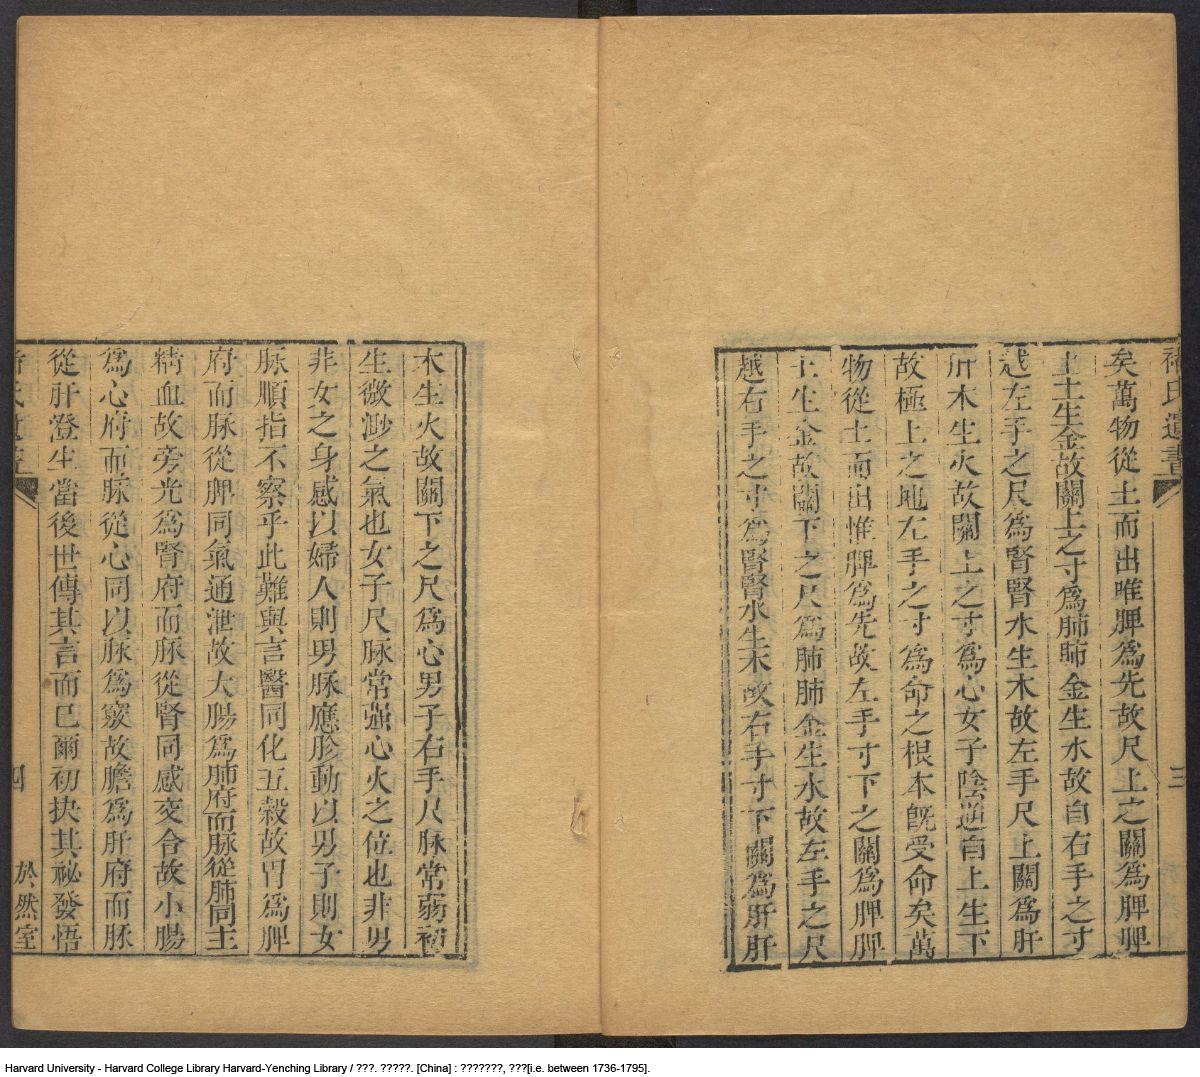 褚氏遺書
三
矣萬物從土而出唯脾爲先故尺上之關爲脾脾
土土生金故關上之寸爲肺肺金生水故自右手之寸
越左手之尺爲腎腎水生木故左手尺上關爲肝
肝木生火故關上之寸爲心女子陰逆自上生下
故極上之地左手之寸爲命之根本旣受命矣萬
物從土而出惟脾爲先故左手寸下之關爲脾脾
土生金故關下之尺爲肺肺金生水故左手之尺
越右手之寸爲腎腎水生木故右手寸下關爲肝肝
木生火故關下之尺爲心男子右手尺脉常弱初
生微渺之氣也女子尺脉常强心火之位也非男
非女之身感以婦人則男脉應胗動以男子則女
脉順指不察乎此難與言醫同化五穀故胃爲脾
府而脉從脾同氣通泄故大腸爲肺府而脉從肺同主
精血故旁光爲腎府而脉從腎同感交合故小腸
爲心府而脉從心同以脉爲竅故膽爲肝府而脉
從肝澄生當後世傳其言而已爾初抉其祕發悟
四
於然室
Harvard University - Harvard College Library Harvard-Yenching Library / ???. ?????. [China] : ???????, ???[i.e. between 1736-1795].